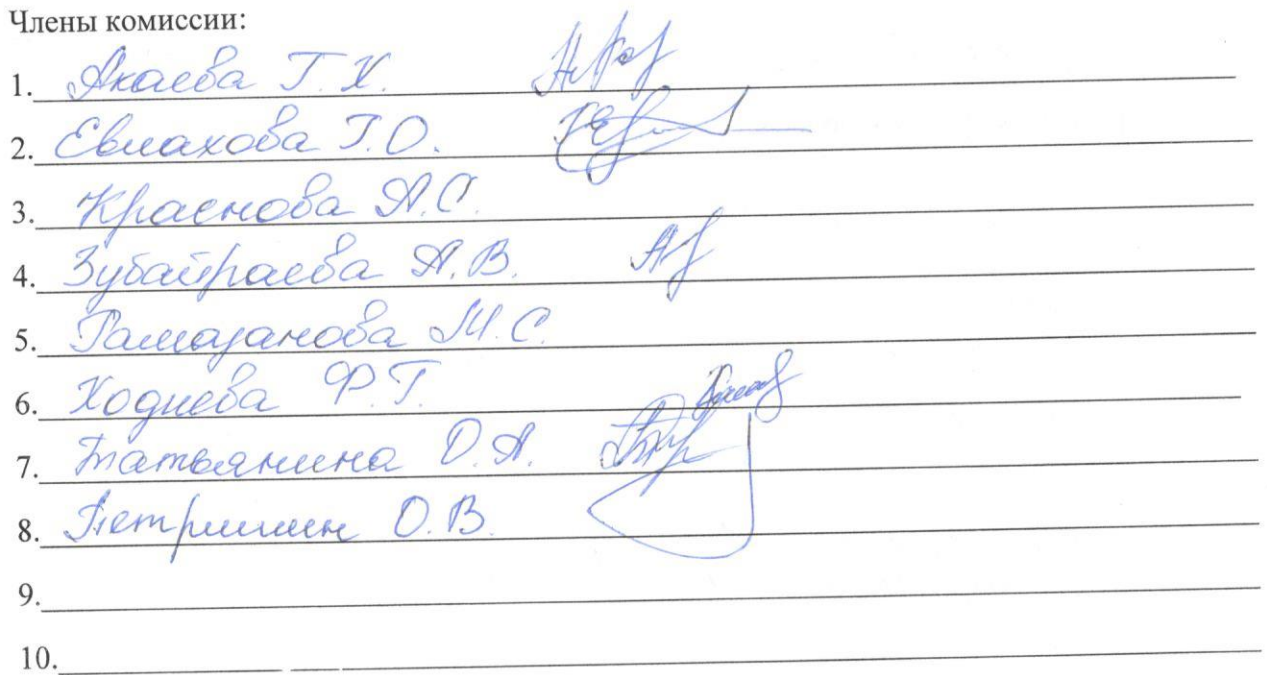 Члены комиссии:
1. Акаева Г. Х.
2. Евлахова Г.О.
3. Краснова А.С.
4. Зубайраева А.В.
5. Рамазанова М.С.
6. Ходиева Ф.Г.
7. Татьянина О.А.
8. Петришин О.В.
9.
10.